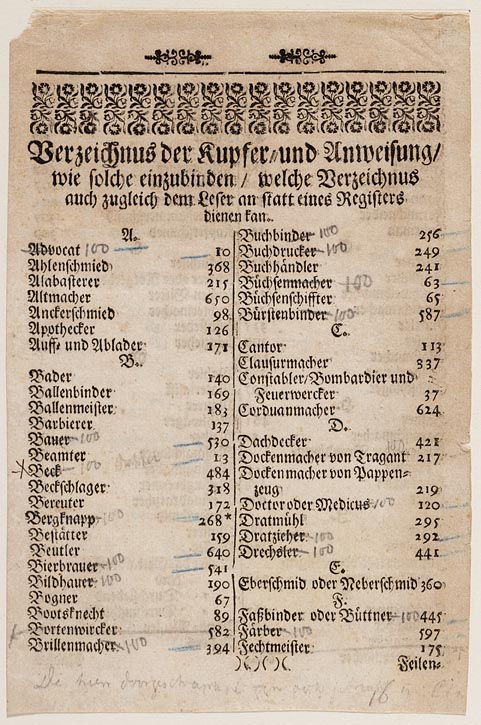 Verzeichnus der Kupfer- und Anweisung/
wie solche einzubinden / welche Verzeichnus
auch zugleich dem Leser an statt eines Registers
dienen kan.
A.
Advocat 100 10
Ahlenschmied 368
Alabasterer 215
Altmacher 650
Anckerschmied 98
Apothecker 126
Auff- und Ablader 171
B.
Bader 140
Ballenbinder 169
Ballenmeister 183
Barbierer 137
Bauer 100 530
Beamter 13
x Beck 100 484
Beckschlager 318
Bereuter 172
Bergknapp 100 268*
Bestätter 159
Beutler 640
Bierbrauer 100 541
Bildhauer 100 190
Bogner 67
Bootsknecht 89
x Bortenwircker 582
Brillenmacher 100 394
Buchbinder 100 256
Buchdrucker 100 249
Buchhändler 241
Büchsenmacher 100 63
Büchsenschiffter 65
Bürstenbinder 100 587
C.
Cantor 113
Clausurmacher 337
Constabler/Bombardier und
Feuerwercker 37
Corduanmacher 624
D.
Dachdecker 421
Dockenmacher von Tragant 100 217
Dockenmacher von Pappen-
zeug 219
Doctor oder Medicus 100 120
Dratmühl 295
Dratzieher 100 292
Drechsler 100 441
E.
Eberschmid oder Neberschmid 360
F.
Faßbinder oder Büttner 100 445
Färber 100 597
Fechtmeister 175
Feilen-
De hier